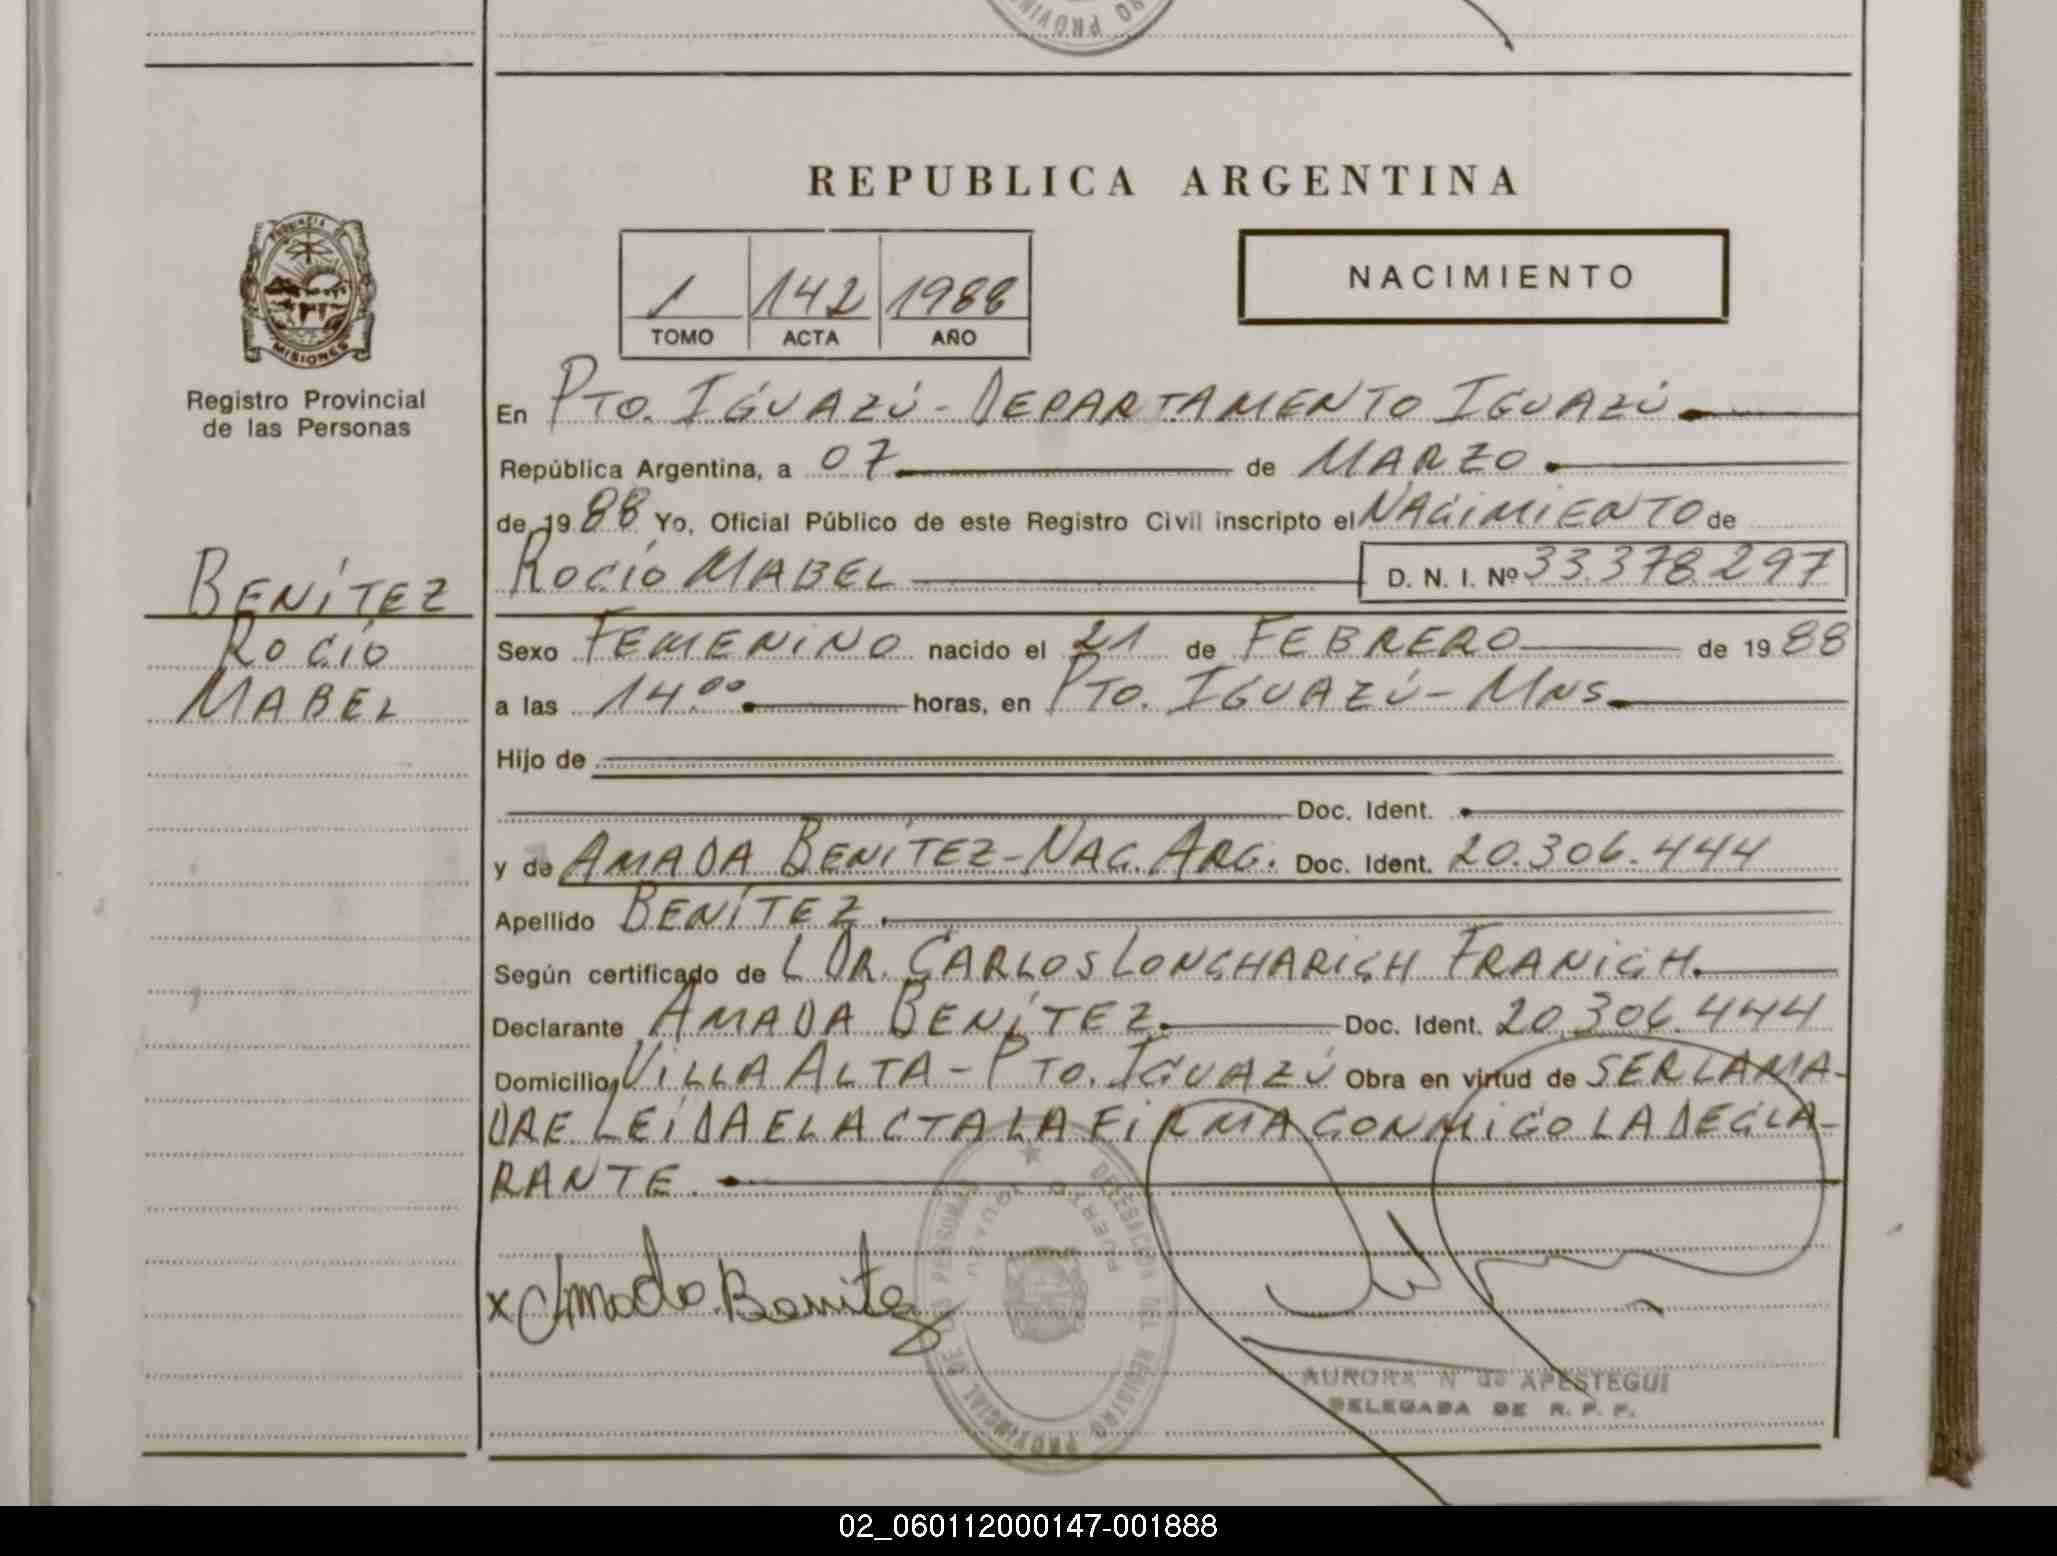 NO PROVIN
REPUBLICA ARGENTINA
PROVINCIA DE
MISIONES
1 142 1988
TOMO ACTA AÑO
NACIMIENTO
Registro Provincial
de las Personas
En PTO. IGUAZÚ - DEPARTAMENTO IGUAZÚ
República Argentina, a 07 de MARZO
de 1988 Yo, Oficial Público de este Registro Civil inscripto el NACIMIENTO de
ROCÍO MABEL D. N. I. Nº 33.378.297
BENÍTEZ
ROCÍO
MABEL
Sexo FEMENINO nacido el 21 de FEBRERO de 1988
a las 14.00 horas, en PTO. IGUAZÚ - MNS
Hijo de
Doc. Ident.
y de AMADA BENÍTEZ - NAC. ARG. Doc. Ident. 20.306.444
Apellido BENÍTEZ.
Según certificado de L DR. CARLOS LONCHARICH FRANICH.
Declarante AMADA BENÍTEZ. Doc. Ident. 20.306.444
Domicilio VILLA ALTA - PTO. IGUAZÚ Obra en virtud de SER LA MA-
DRE. LEÍDA EL ACTA LA FIRMA CONMIGO LA DECLA-
RANTE.
x Amada Benitez
DELEGACION DEL REGISTRO PROVINCIAL DE LAS PERSONAS
PUERTO IGUAZU
AURORA N de APESTEGUI
DELEGADA DE R. P. P.
02_060112000147-001888